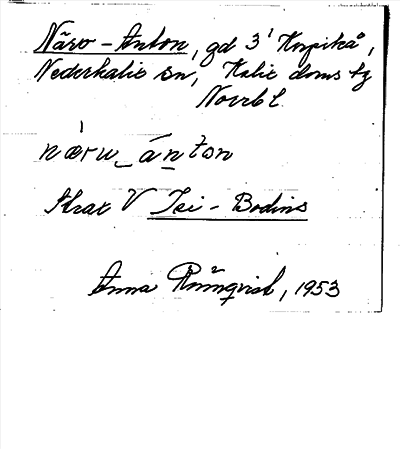 Näro-Anton, gd 3¹ Korpikå,
Nederkalix sn, Kalix doms tg
Norrb l.
näru_ánton
strax V Isi-Bodins
Anna Rönnqvist, 1953